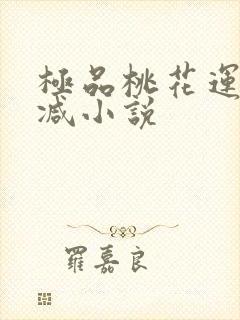 極品桃花運
减小説
羅嘉良